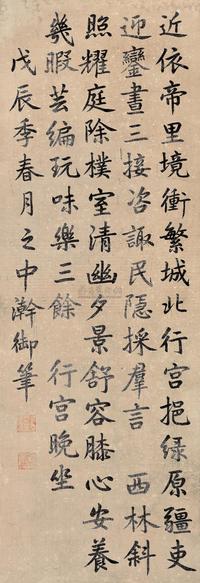 近依帝里境衝繁城北行宮挹绿原疆吏
迎鑾晝三接咨諏民隱採羣言　西林斜
照耀庭除樸室清幽夕景舒容膝心安養
幾暇芸編玩味樂三餘　行宮晚坐
戊辰季春月之中澣御筆